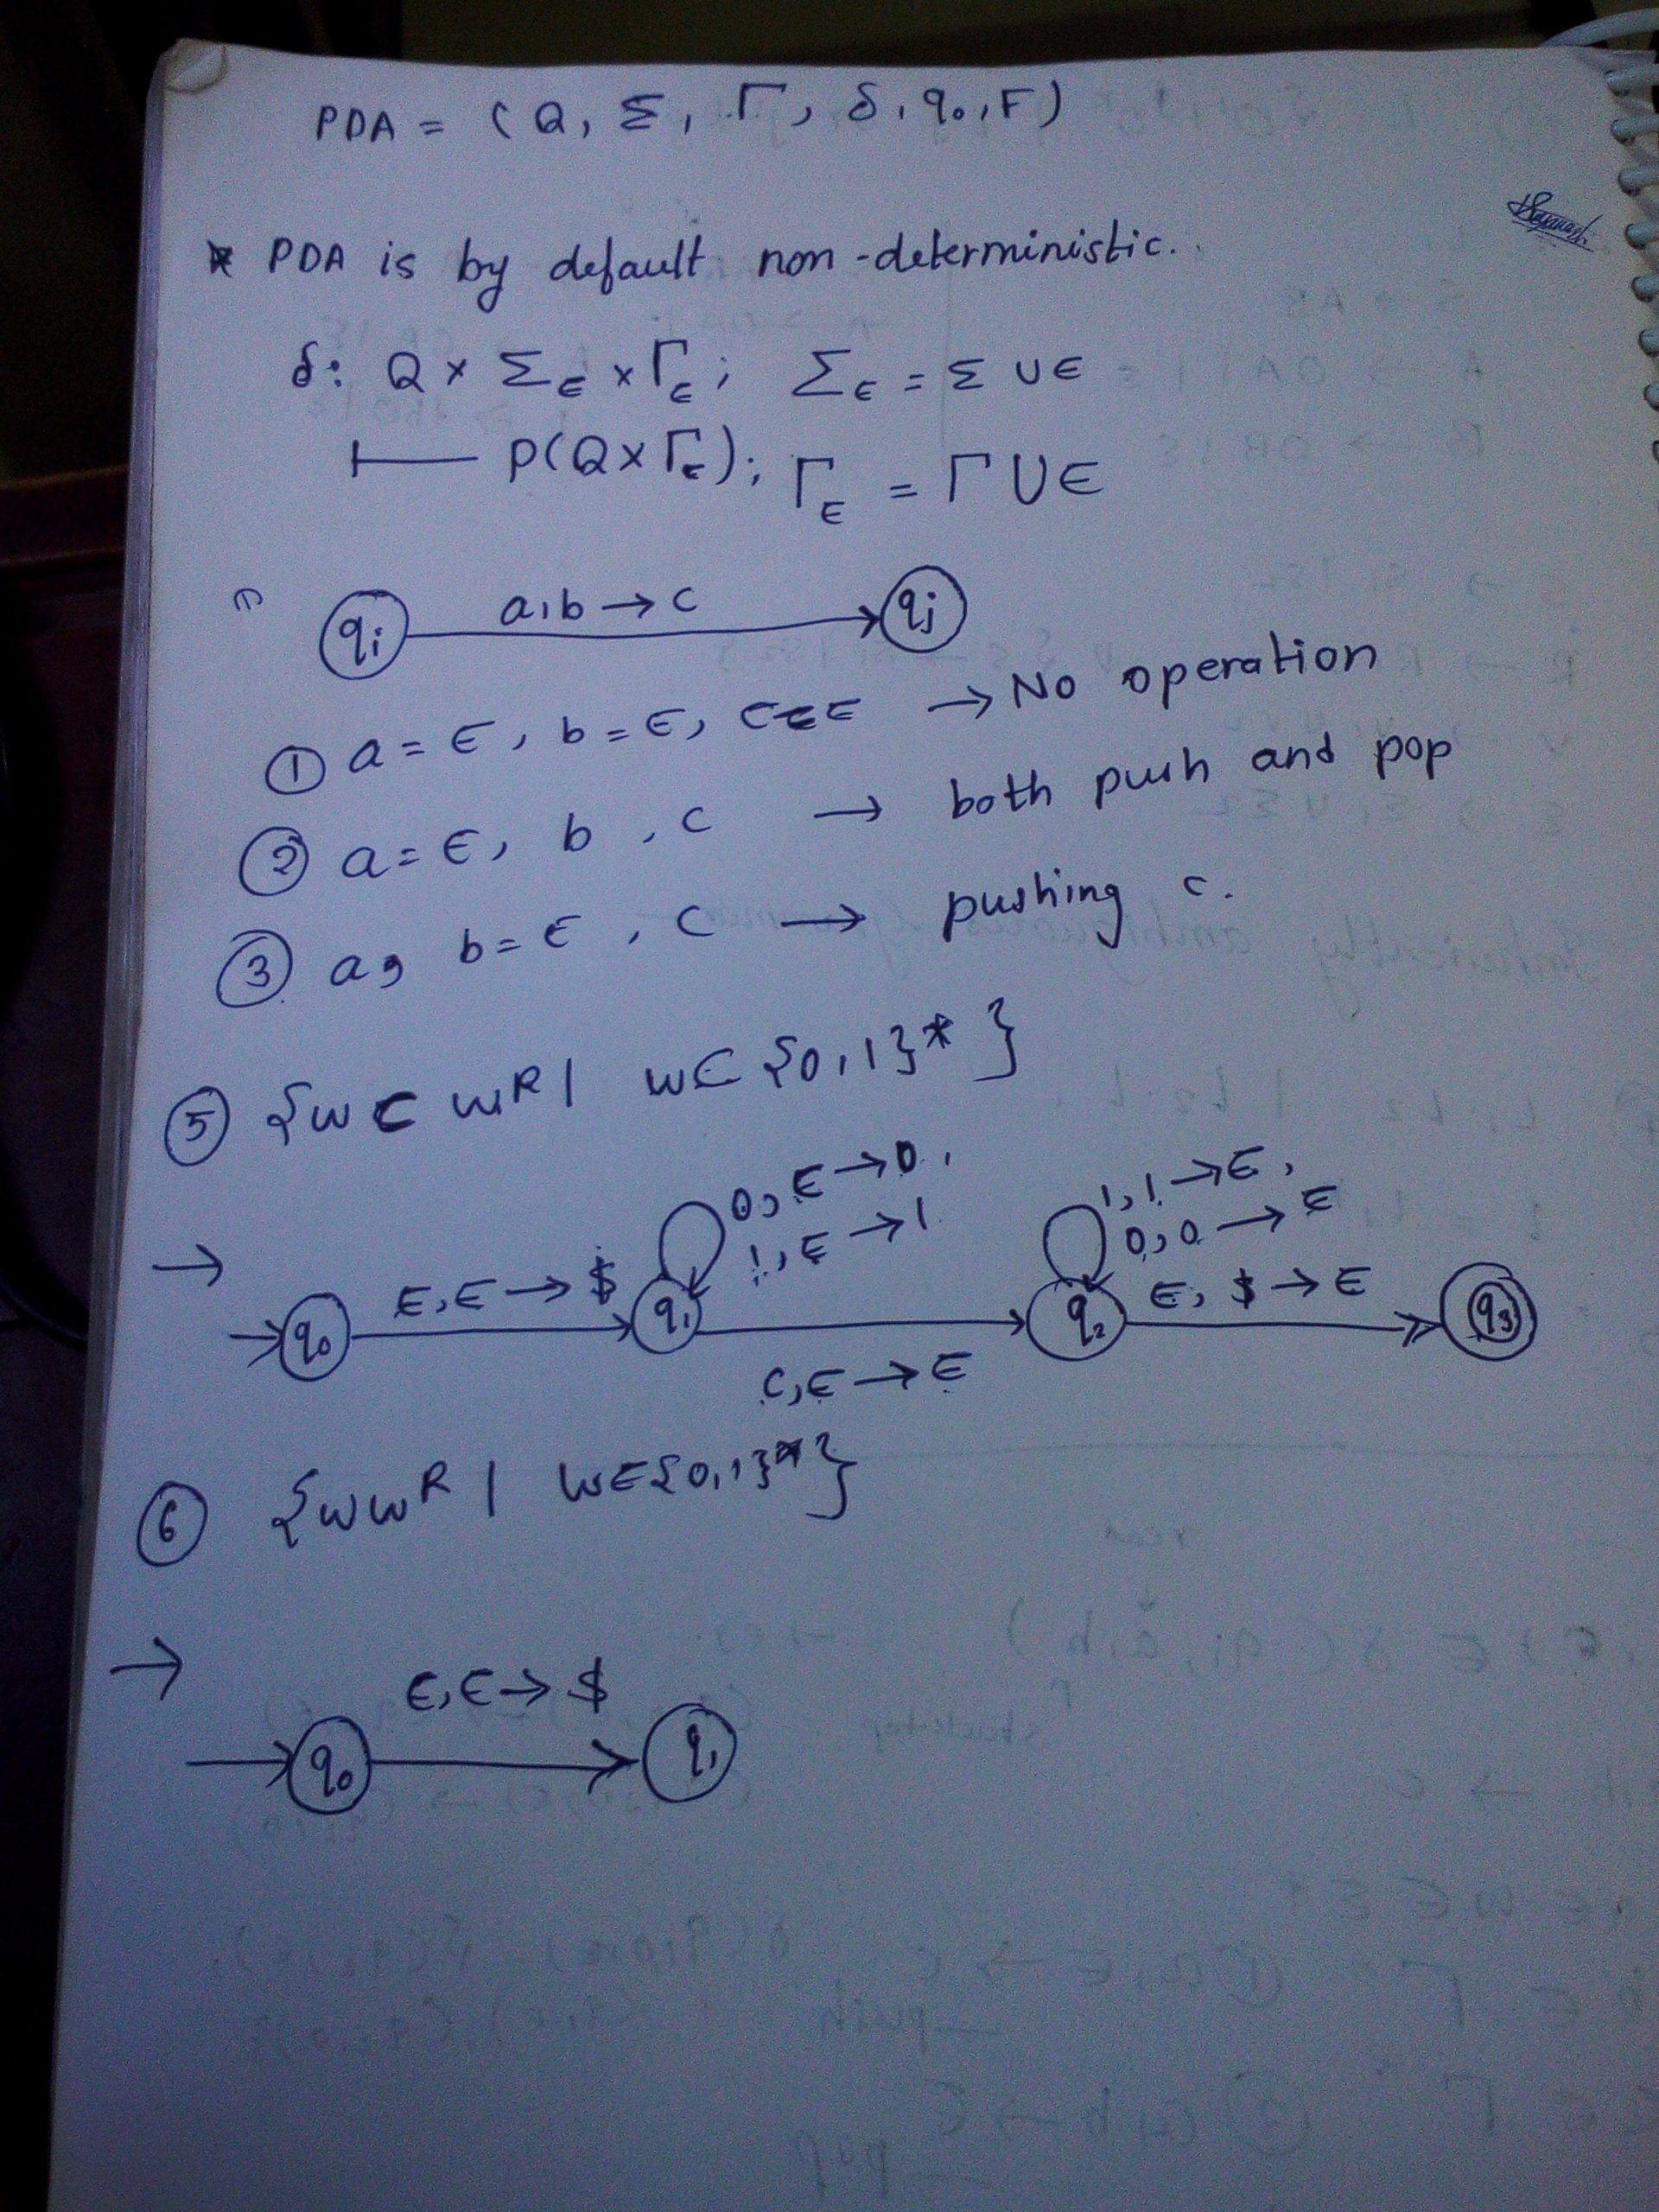 PDA = (Q, Σ, Γ, δ, q₀, F)
* PDA is by default non-deterministic.
δ: Q × Σ_ϵ × Γ_ϵ ; Σ_ϵ = Σ ∪ ϵ
⊢— P(Q × Γ_ϵ) ; Γ_ϵ = Γ ∪ ϵ
qi a, b → c qj
① a = ϵ, b = ϵ, c = ϵ → No operation
② a = ϵ, b, c → both push and pop
③ a, b = ϵ, c → pushing c.
⑤ {w c wᴿ | w ∈ {0,1}* }
0, ϵ → 0,
1, ϵ → 1
1, 1 → ϵ,
0, 0 → ϵ
→ q₀ ϵ, ϵ → $ q₁ c, ϵ → ϵ q₂ ϵ, $ → ϵ q₃
⑥ {wwᴿ | w ∈ {0,1}*}
→ q₀ ϵ, ϵ → $ q₁